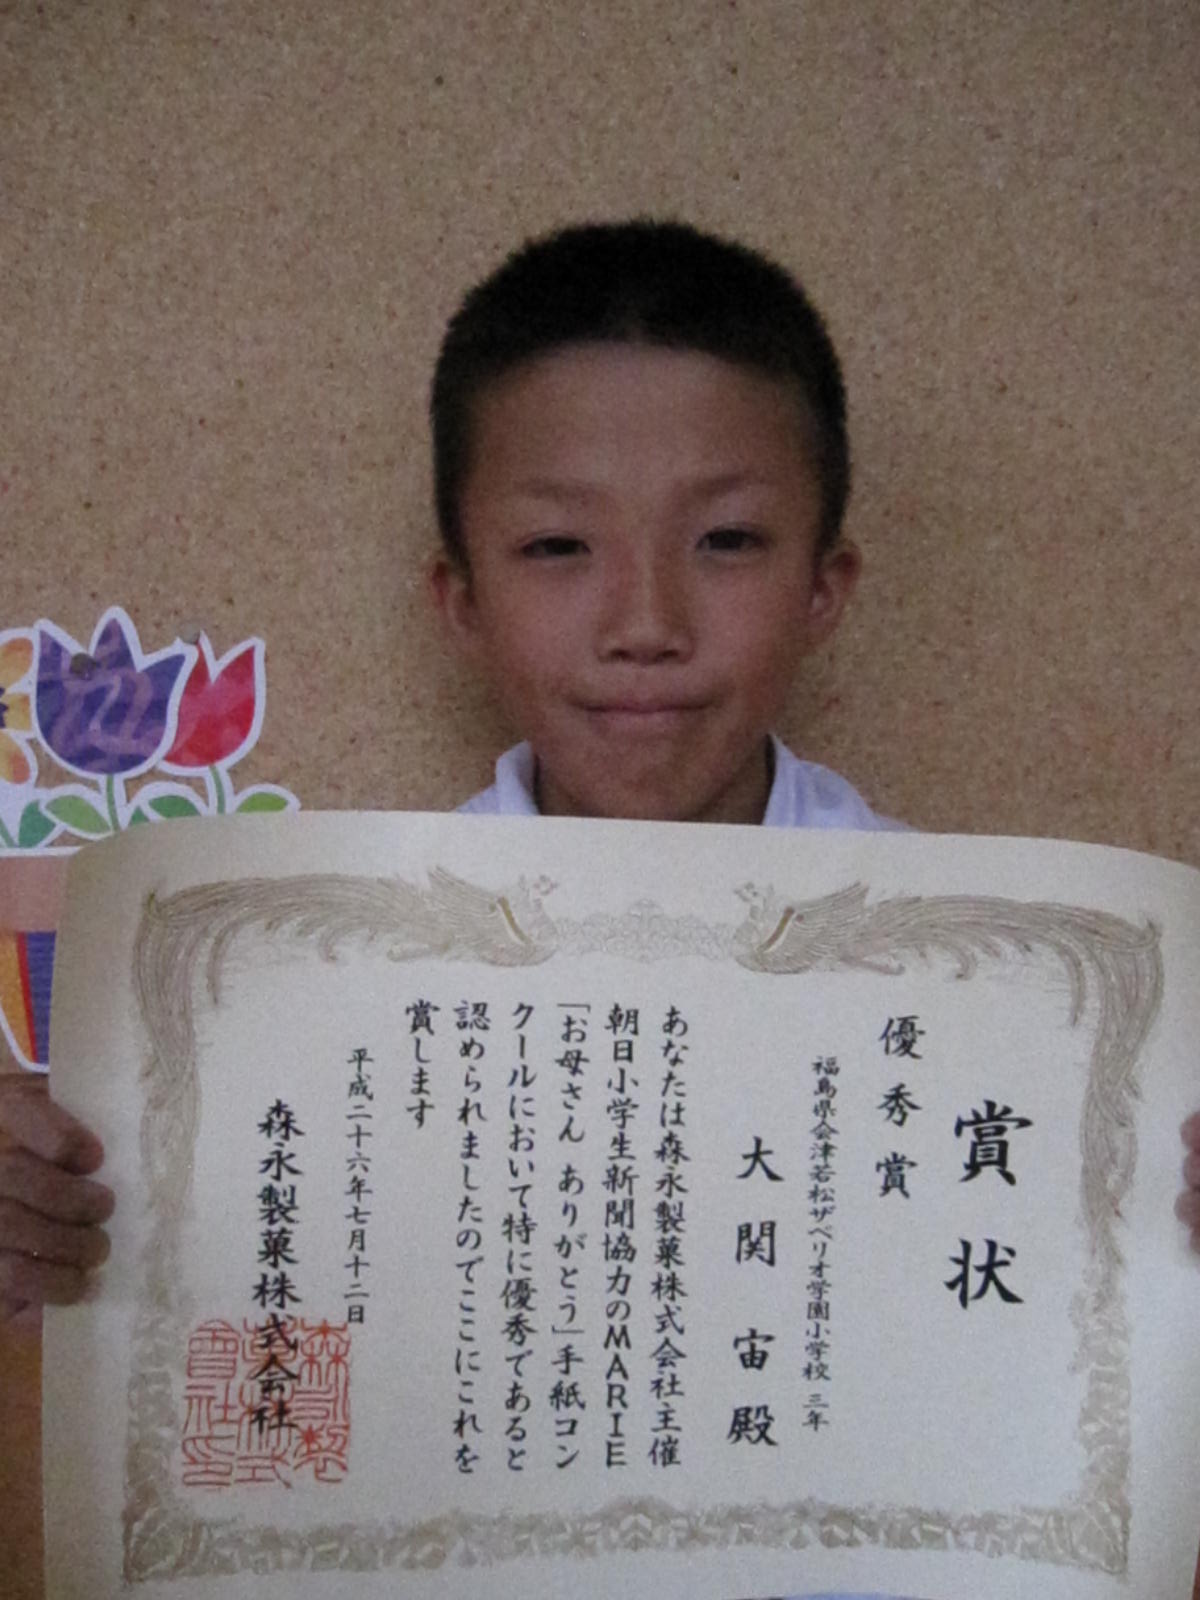 賞状
優秀賞
福島県会津若松ザベリオ学園小学校 三年
大関 宙 殿
あなたは森永製菓株式会社主催
朝日小学生新聞協力のMARIE
「お母さん ありがとう」手紙コン
クールにおいて特に優秀であると
認められましたのでここにこれを
賞します
平成二十六年七月十二日
森永製菓株式会社